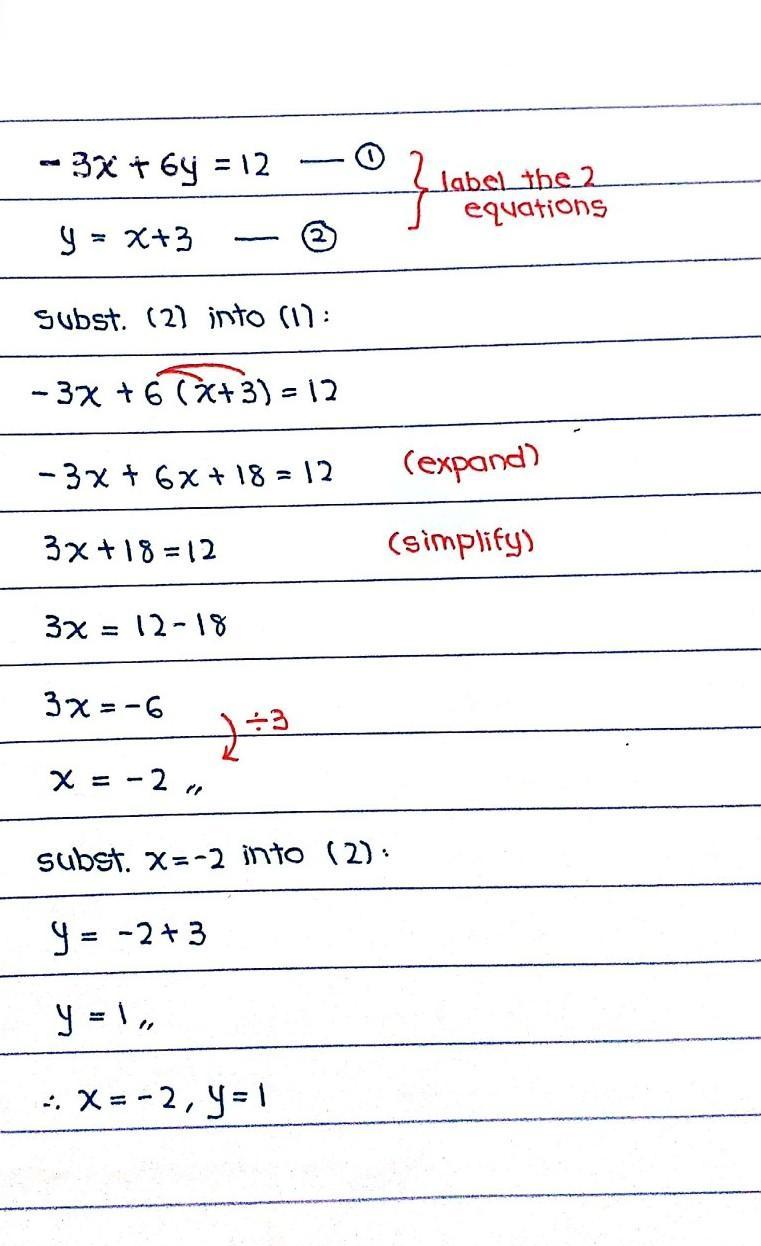 -3x + 6y = 12 — ①
y = x+3 — ②
} label the 2
equations
subst. (2) into (1):
-3x + 6 (x+3) = 12
-3x + 6x + 18 = 12 (expand)
3x + 18 = 12 (simplify)
3x = 12-18
3x = -6
÷3
x = -2 〃
subst. x=-2 into (2):
y = -2+3
y = 1 〃
∴ x = -2, y = 1